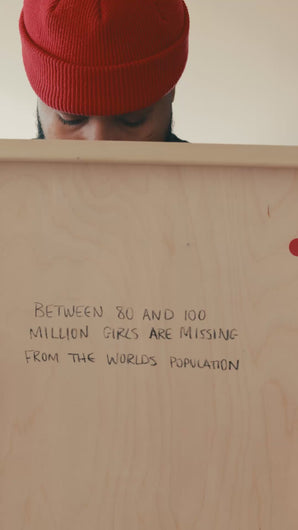 BETWEEN 80 AND 100
MILLION GIRLS ARE MISSING
FROM THE WORLDS POPULATION